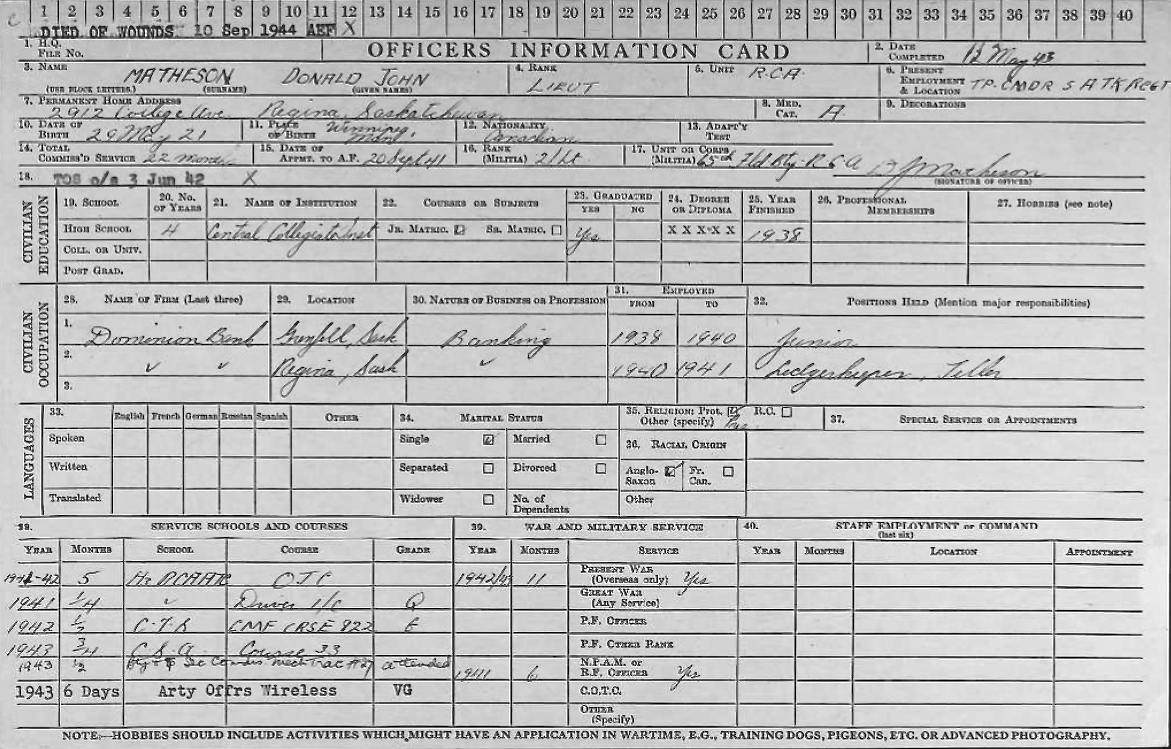 1 2 3 4 5 6 7 8 9 10 11 12 13 14 15 16 17 18 19 20 21 22 23 24 25 26 27 28 29 30 31 32 33 34 35 36 37 38 39 40
DIED OF WOUNDS 10 Sep 1944 AEF X
1. H.Q. FILE No. OFFICERS INFORMATION CARD 2. DATE COMPLETED 12 May 43
3. NAME MATHESON DONALD JOHN 4. RANK LIEUT 5. UNIT R.C.A. 6. PRESENT EMPLOYMENT & LOCATION TP. CMDR 5 ATK REGT
(USE BLOCK LETTERS.) (SURNAME) (GIVEN NAMES)
7. PERMANENT HOME ADDRESS 2912 College Ave. Regina, Saskatchewan 8. MED. CAT. A. 9. DECORATIONS
10. DATE OF BIRTH 29 May 21 11. PLACE OF BIRTH Winnipeg, Man. 12. NATIONALITY Canadian 13. ADAPT'Y TEST
14. TOTAL COMMIS'D SERVICE 22 months 15. DATE OF APPMT. TO A.F. 20 Sept 41 16. RANK (MILITIA) 2/Lt 17. UNIT OR CORPS (MILITIA) 65th Fld Bty. R.C.A. D J Matheson
(SIGNATURE OF OFFICER)
18. TOS o/s 3 Jun 42 X
CIVILIAN EDUCATION
19. SCHOOL 20. No. OF YEARS 21. NAME OF INSTITUTION 22. COURSES OR SUBJECTS 23. GRADUATED YES NO 24. DEGREE OR DIPLOMA 25. YEAR FINISHED 26. PROFESSIONAL MEMBERSHIPS 27. HOBBIES (see note)
HIGH SCHOOL 4 Central Collegiate Inst JR. MATRIC. ☑ SR. MATRIC. ☐ Yes X X X X X 1938
COLL. OR UNIV.
POST GRAD.
CIVILIAN OCCUPATION
28. NAME OF FIRM (Last three) 29. LOCATION 30. NATURE OF BUSINESS OR PROFESSION 31. EMPLOYED FROM TO 32. POSITIONS HELD (Mention major responsibilities)
1. Dominion Bank Grenfell, Sask Banking 1938 1940 Junior
2. " " Regina, Sask " 1940 1941 Ledgerkeeper, Teller
3.
LANGUAGES
33. English French German Russian Spanish OTHER 34. MARITAL STATUS 35. RELIGION: Prot. ☑ R.C. ☐ 37. SPECIAL SERVICE OR APPOINTMENTS
Other (specify)
Spoken Single ☑ Married ☐ 36. RACIAL ORIGIN
Written Separated ☐ Divorced ☐ Anglo-Saxon ☑ Fr. Can. ☐
Translated Widower ☐ No. of Dependents Other
38. SERVICE SCHOOLS AND COURSES 39. WAR AND MILITARY SERVICE 40. STAFF EMPLOYMENT or COMMAND
(last six)
YEAR MONTHS SCHOOL COURSE GRADE YEAR MONTHS SERVICE YEAR MONTHS LOCATION APPOINTMENT
1941-42 5 OTC 1942/43 11 PRESENT WAR (Overseas only) Yes
1941 1/4 " Driver I/C Q GREAT WAR (Any Service)
1942 1/2 CMF CRSE 822 P.F. OFFICER
1943 3/4 C.S.A. Course 33 P.F. OTHER RANK
1943 1/2 attended 1941 6 N.P.A.M. OR R.F. OFFICER Yes
1943 6 Days Arty Offrs Wireless VG C.O.T.C.
OTHER (Specify)
NOTE:—HOBBIES SHOULD INCLUDE ACTIVITIES WHICH MIGHT HAVE AN APPLICATION IN WARTIME, E.G., TRAINING DOGS, PIGEONS, ETC. OR ADVANCED PHOTOGRAPHY.